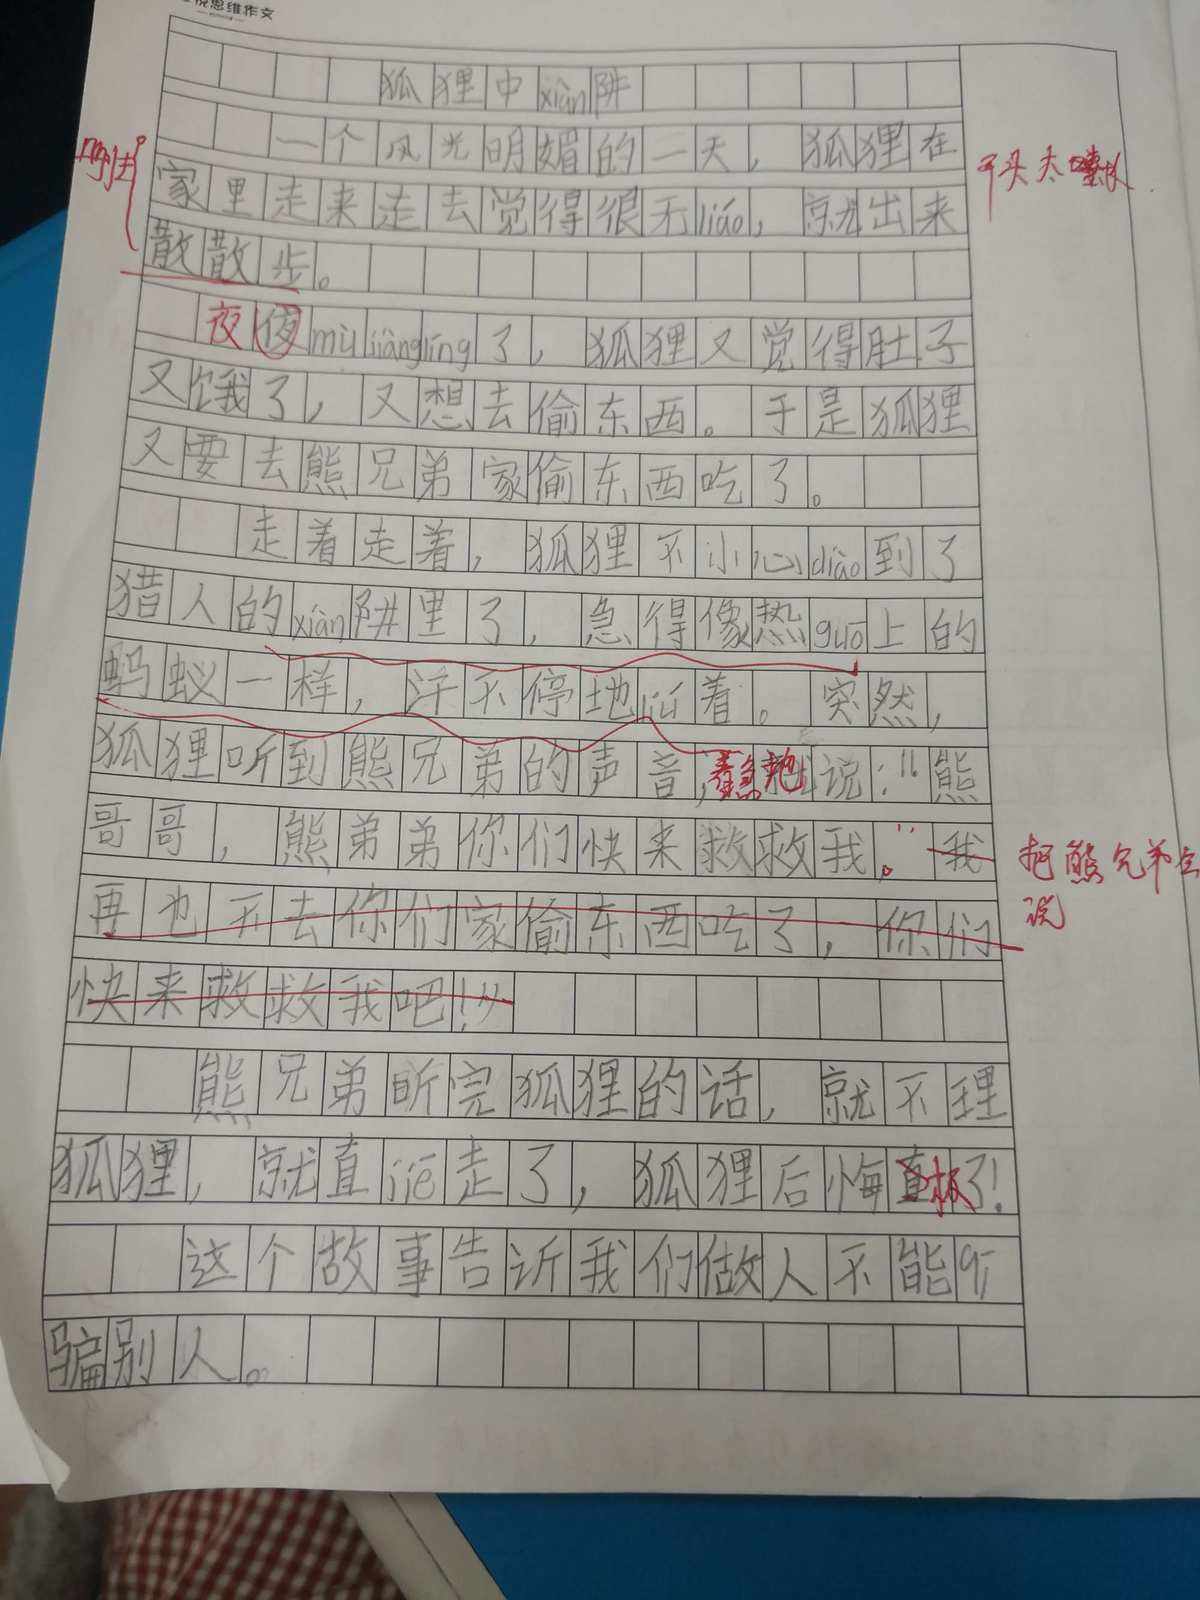 悦思维作文
狐狸中xiàn阱
一个风光明媚的一天，狐狸在
家里走来走去觉得很无liáo，就出来
散散步。
开头太
夜夜mù jiàng líng了，狐狸又觉得肚子
又饿了，又想去偷东西。于是狐狸
又要去熊兄弟家偷东西吃了。
走着走着，狐狸不小心diào到了
猎人的xiàn阱里了，急得像热guō上的
蚂蚁一样，汗不停地liú着。突然，
狐狸听到熊兄弟的声音，着急地说："熊
哥哥，熊弟弟你们快来救救我。"我
再也不去你们家偷东西吃了，你们
快来救救我吧！"
把熊兄弟
说
熊兄弟听完狐狸的话，就不理
狐狸，就直jiē走了，狐狸后悔极了！
这个故事告诉我们做人不能
骗别人。